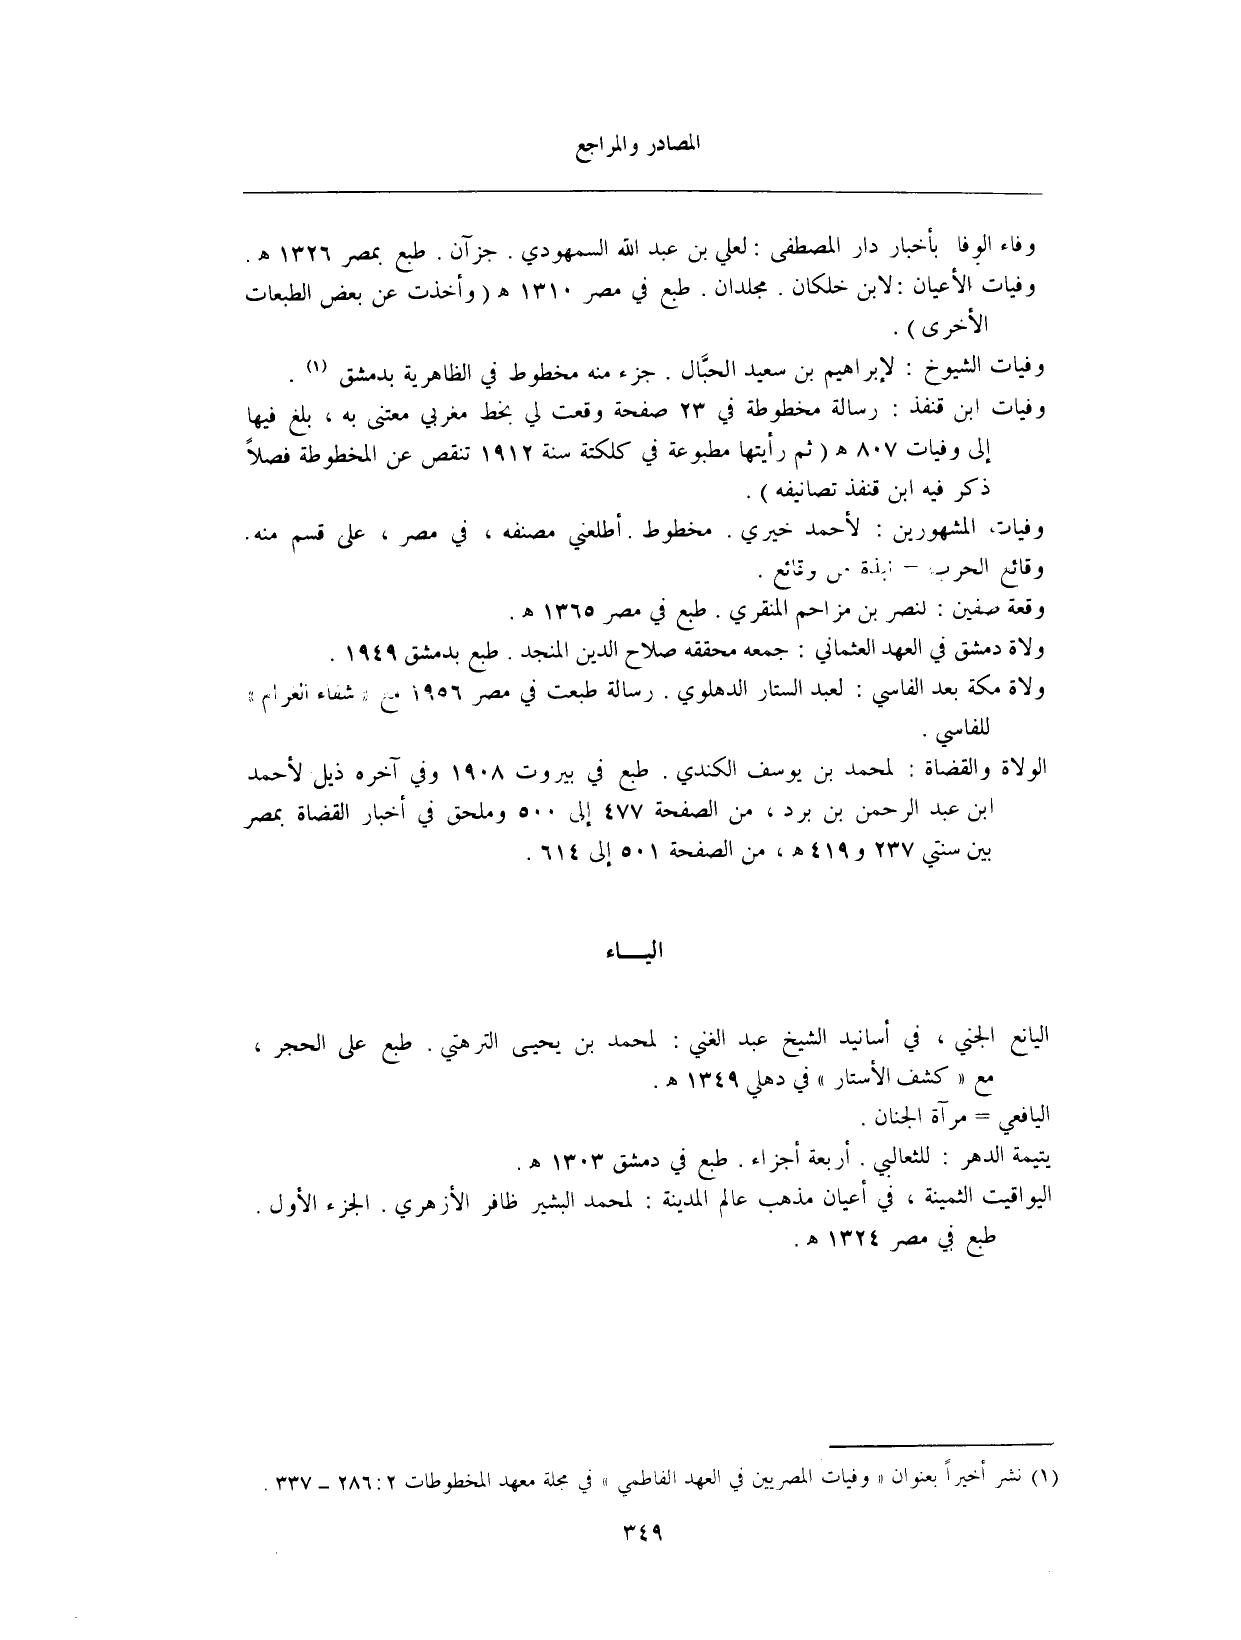 المصادر والمراجع
وفاء الوفا بأخبار دار المصطفى : لعلي بن عبد الله السمهودي . جزآن . طبع بمصر ١٣٢٦ ه .
وفيات الأعيان : لابن خلكان . مجلدان . طبع في مصر ١٣١٠ ه ( وأخذت عن بعض الطبعات
الأخرى ) .
وفيات الشيوخ : لإبراهيم بن سعيد الحبَّال . جزء منه مخطوط في الظاهرية بدمشق (١) .
وفيات ابن قنفذ : رسالة مخطوطة في ٢٣ صفحة وقعت لي بخط مغربي معتنى به ، بلغ فيها
إلى وفيات ٨٠٧ ه ( ثم رأيتها مطبوعة في كلكتة سنة ١٩١٢ تنقص عن المخطوطة فصلاً
ذكر فيه ابن قنفذ تصانيفه ) .
وفيات المشهورين : لأحمد خيري . مخطوط . أطلعني مصنفه ، في مصر ، على قسم منه .
وقائع الحرب = نبذة من وقائع .
وقعة صفين : لنصر بن مزاحم المنقري . طبع في مصر ١٣٦٥ ه .
ولاة دمشق في العهد العثماني : جمعه محققه صلاح الدين المنجد . طبع بدمشق ١٩٤٩ .
ولاة مكة بعد الفاسي : لعبد الستار الدهلوي . رسالة طبعت في مصر ١٩٥٦ مع « شفاء الغرام »
للفاسي .
الولاة والقضاة : لمحمد بن يوسف الكندي . طبع في بيروت ١٩٠٨ وفي آخره ذيل لأحمد
ابن عبد الرحمن بن برد ، من الصفحة ٤٧٧ إلى ٥٠٠ وملحق في أخبار القضاة بمصر
بين سنتي ٢٣٧ و ٤١٩ ه ، من الصفحة ٥٠١ إلى ٦١٤ .
اليـــاء
اليانع الجني ، في أسانيد الشيخ عبد الغني : لمحمد بن يحيى الترهتي . طبع على الحجر ،
مع « كشف الأستار » في دهلي ١٣٤٩ ه .
اليافعي = مرآة الجنان .
يتيمة الدهر : للثعالبي . أربعة أجزاء . طبع في دمشق ١٣٠٣ ه .
اليواقيت الثمينة ، في أعيان مذهب عالم المدينة : لمحمد البشير ظافر الأزهري . الجزء الأول .
طبع في مصر ١٣٢٤ ه .
(١) نشر أخيراً بعنوان « وفيات المصريين في العهد الفاطمي » في مجلة معهد المخطوطات ٢ : ٢٨٦ – ٣٣٧ .
٣٤٩